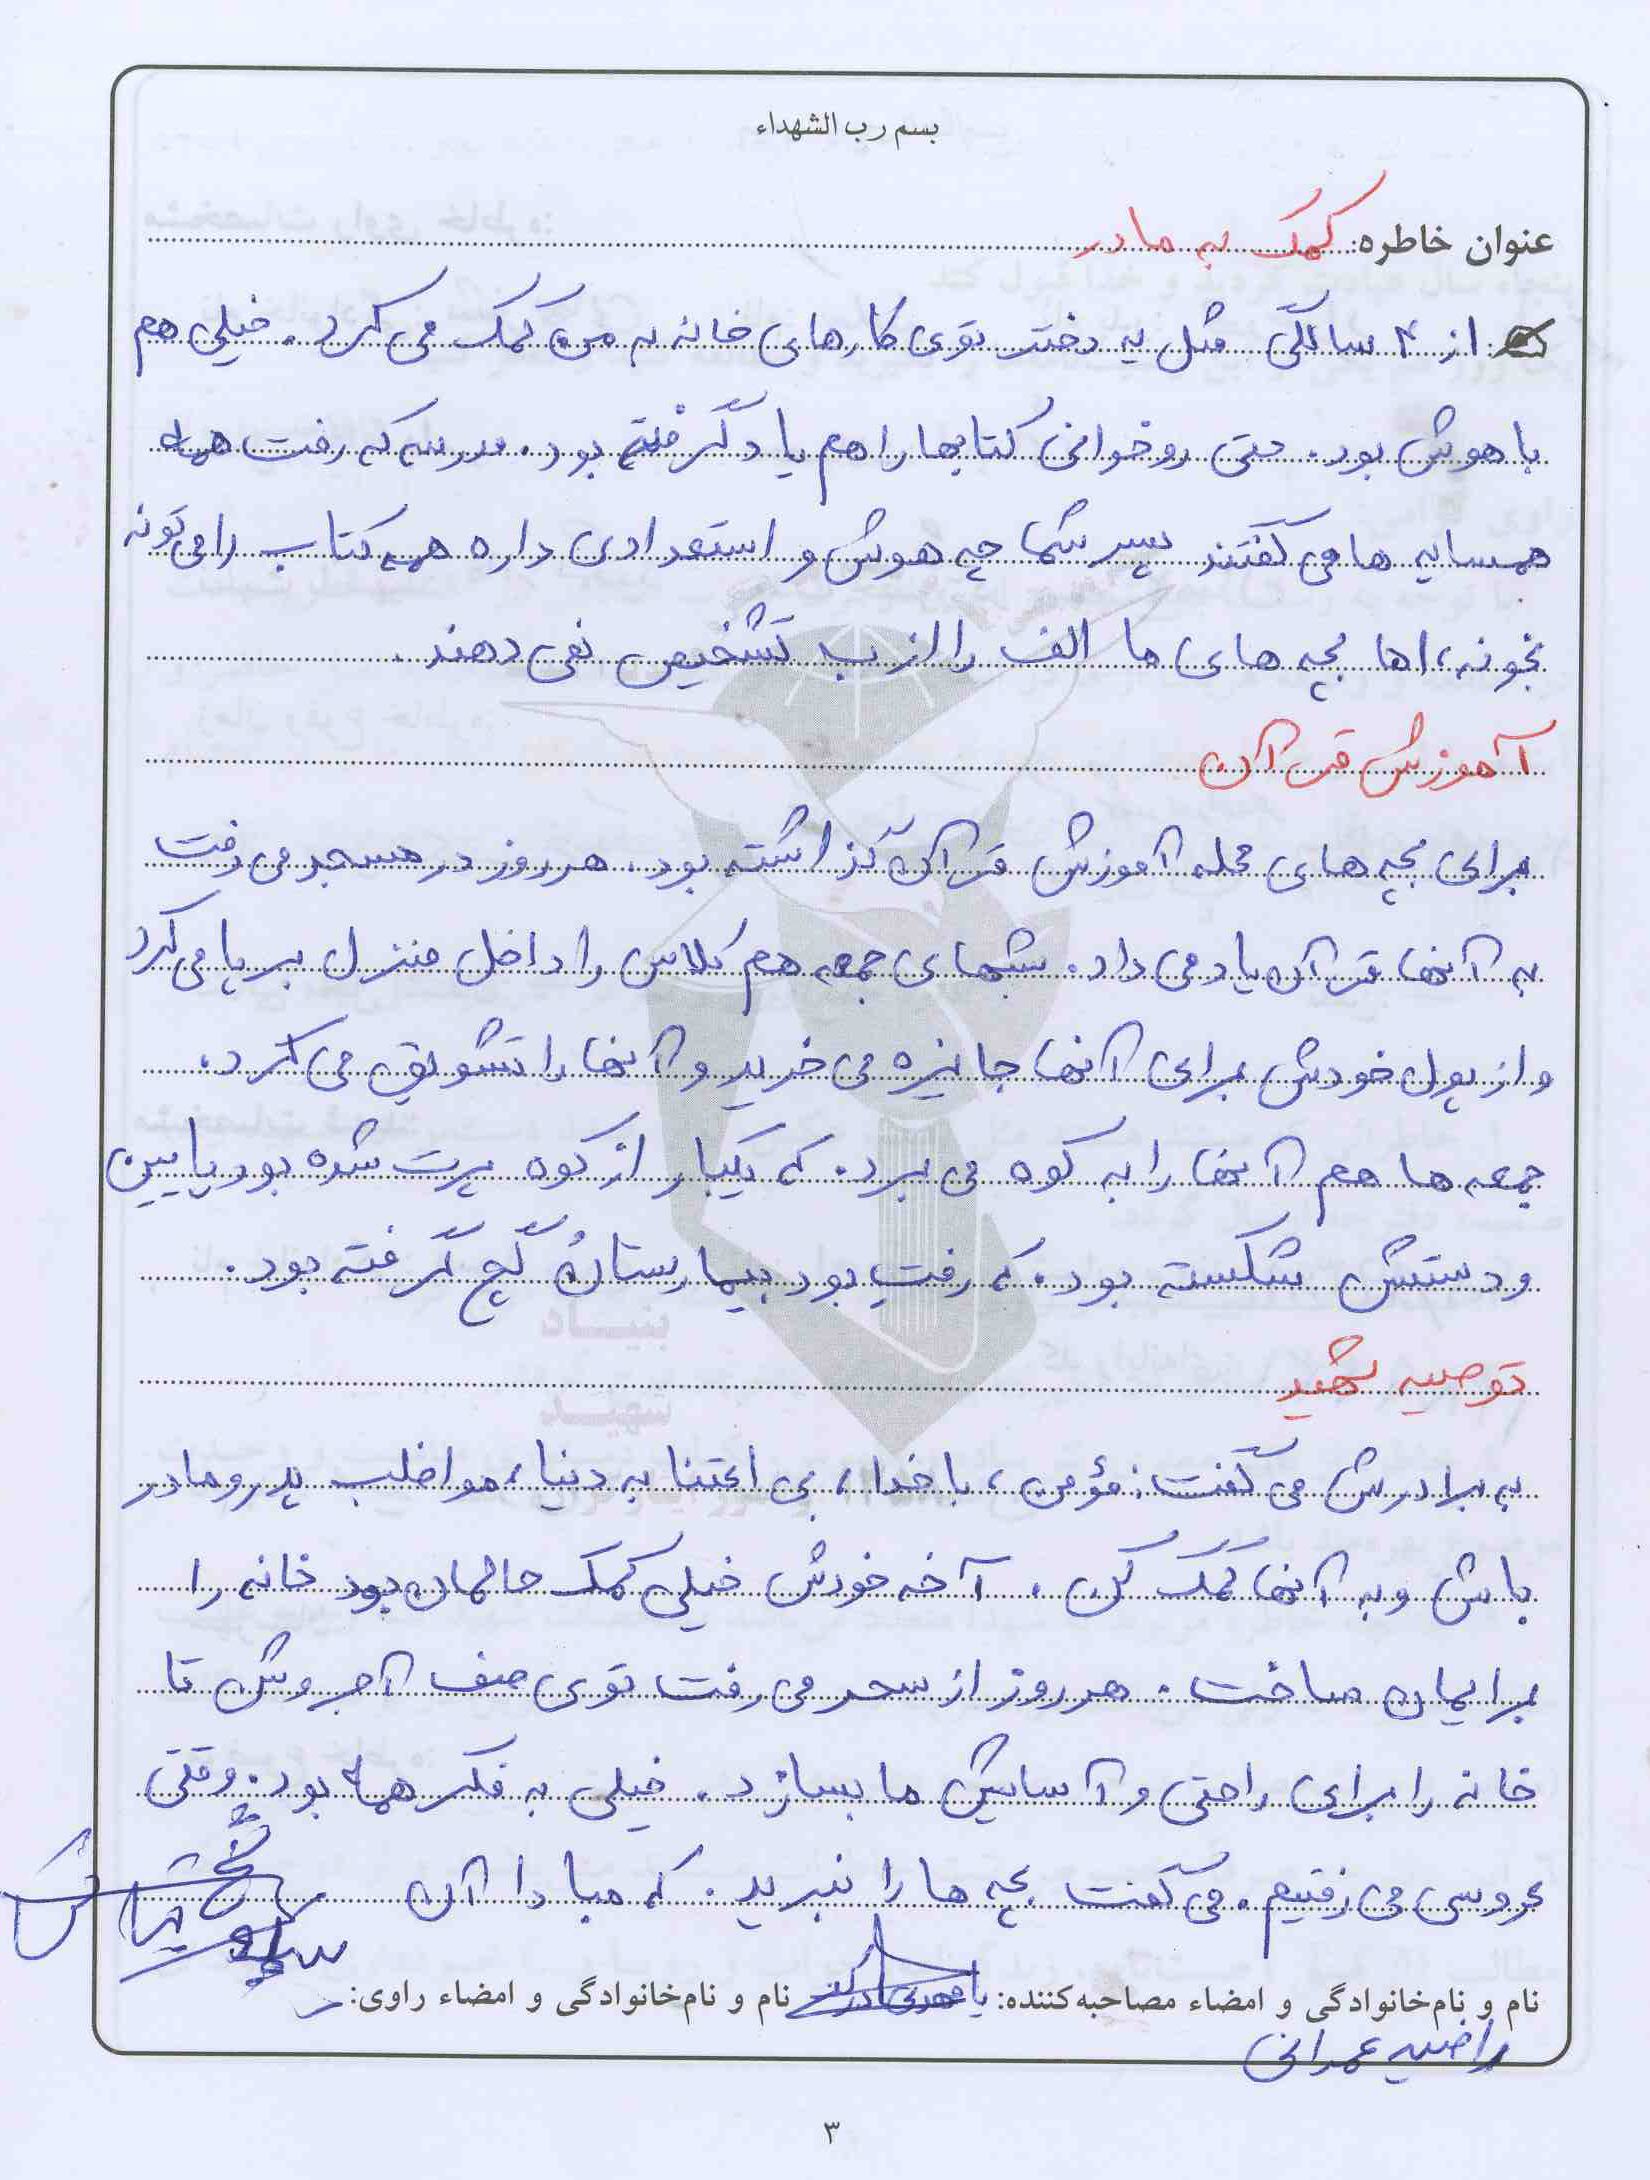 بسم رب الشهداء
عنوان خاطره: کمک به مادر
از ۴ سالگی مثل یه دختر توی کارهای خانه به من کمک می کرد. خیلی هم
باهوش بود. حتی روخوانی کتابها را هم یاد گرفته بود. مدرسه که رفت همه
همسایه ها می گفتند پسر شما چه هوش و استعدادی داره همه کتاب را می تونه
بخونه، اما بچه های ما الف را از ب تشخیص نمی دهند.
آموزش قرآن
برای بچه های محله آموزش قرآن گذاشته بود. هر روز در مسجد می رفت
به آنها قرآن یاد می داد. شبهای جمعه هم کلاس را داخل منزل برپا می کرد
و از پول خودش برای آنها جایزه می خرید و آنها را تشویق می کرد.
جمعه ها هم آنها را به کوه می برد. که یکبار از کوه پرت شده بود پایین
و دستش شکسته بود. که رفت بود بیمارستان گچ گرفته بود.
توصیه شهید
به برادرش می گفت: مؤمن، با خدا، بی اعتنا به دنیا، مواظب پدر و مادر
باش و به آنها کمک کن. آخه خودش خیلی کمک حالمان بود خانه را
برایمان ساخت. هر روز از سحر می رفت توی صف آجر وش تا
خانه را برای راحتی و آسایش ما بسازد. خیلی به فکر همه بود. وقتی
عروسی می رفتیم. می گفت بچه ها را نبرید. که مبادا آن
نام و نام خانوادگی و امضاء مصاحبه کننده: نام و نام خانوادگی و امضاء راوی:
راضیه عمرانی
۳